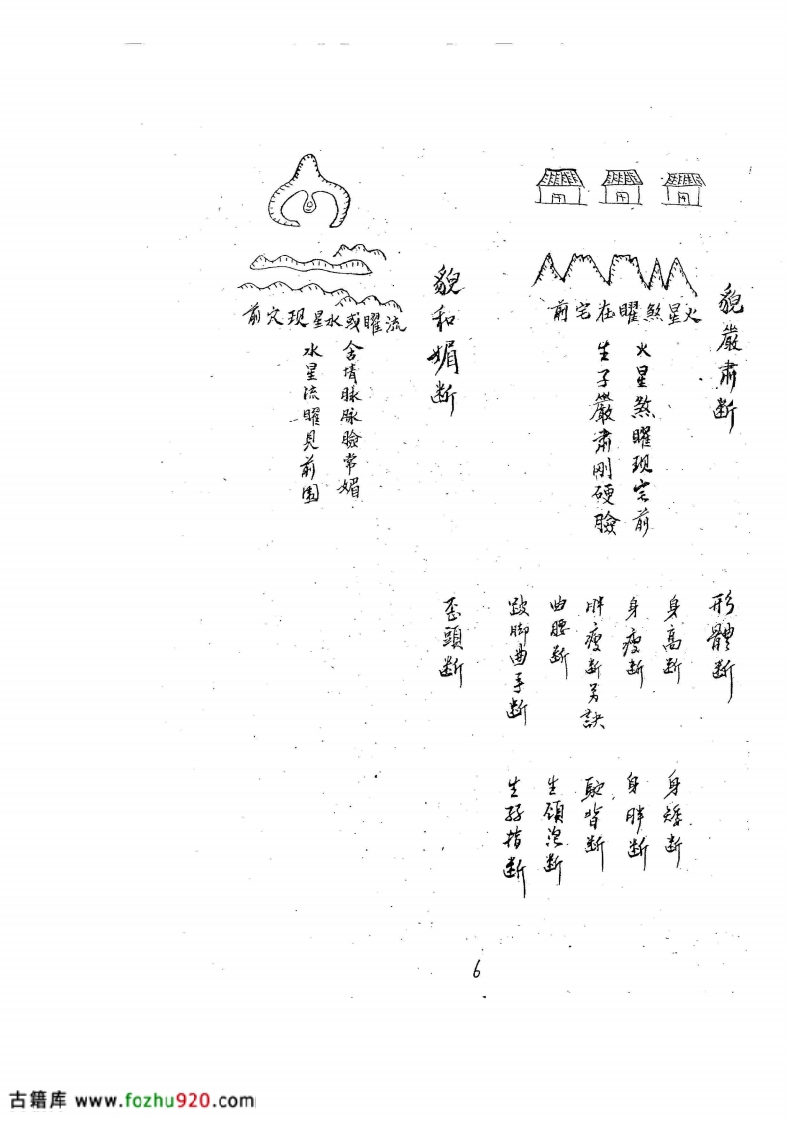 貌嚴肅斷
火星煞曜在宅前
火星煞曜現宅前
生子嚴肅剛硬臉
貌和媚斷
流曜或水星現穴前
含情脉脉臉常媚
水星流曜見前園
形體斷
身高斷
身矮斷
身瘦斷
身胖斷
胖瘦斷另訣
駝背斷
曲腰斷
生頸泡斷
跛脚曲手斷
生孖指斷
歪頭斷
6
古籍库 www.fozhu920.com